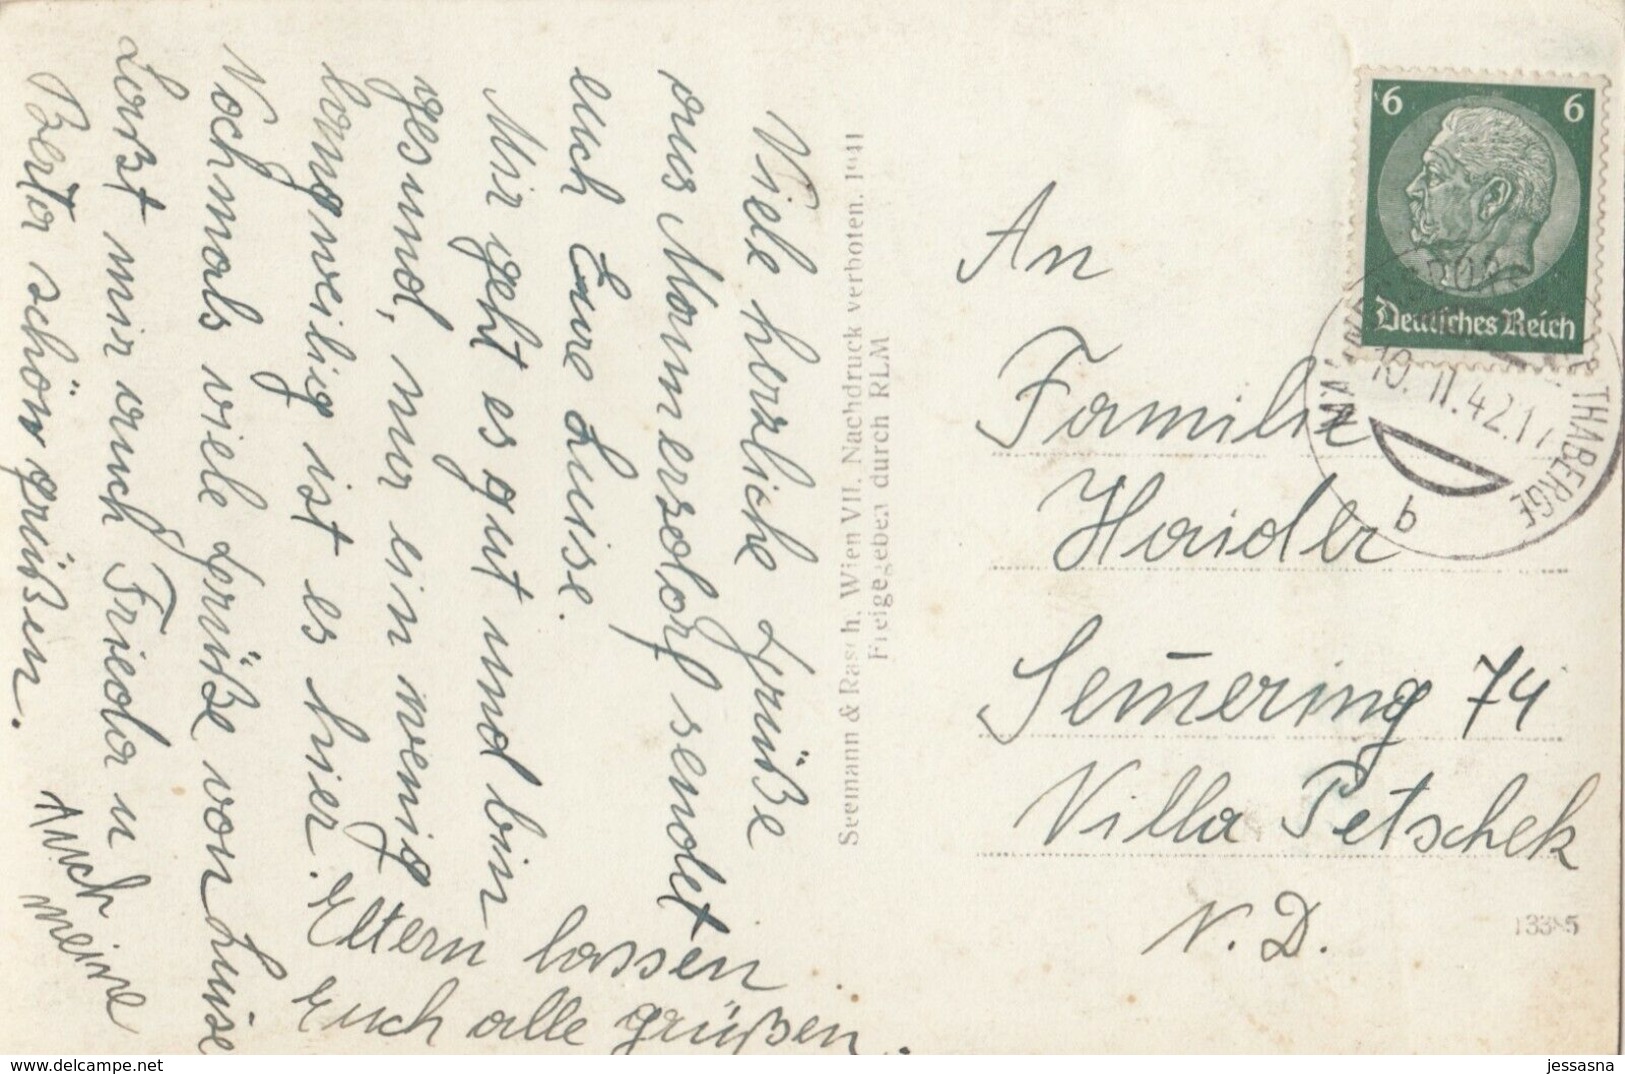 Viele herzliche Grüße
aus Mannersdorf sendet
euch Eure Luise.
Mir geht es gut und bin
gesund, nur ein wenig
langweilig ist es hier.
Nochmals viele Grüße von Luise
Laßt mir auch Frieda u
Berta schön grüßen.
Auch meine
Eltern lassen
Euch alle grüßen.
Seemann & Rasch, Wien VII. Nachdruck verboten. 1941
Freigegeben durch RLM
An
Familie
Haider
Sem̄ering 74
Villa Petschek
N. D.
13385
6 6
Deutsches Reich
10. 11. 42. 17
THABERGE
b
jessasna